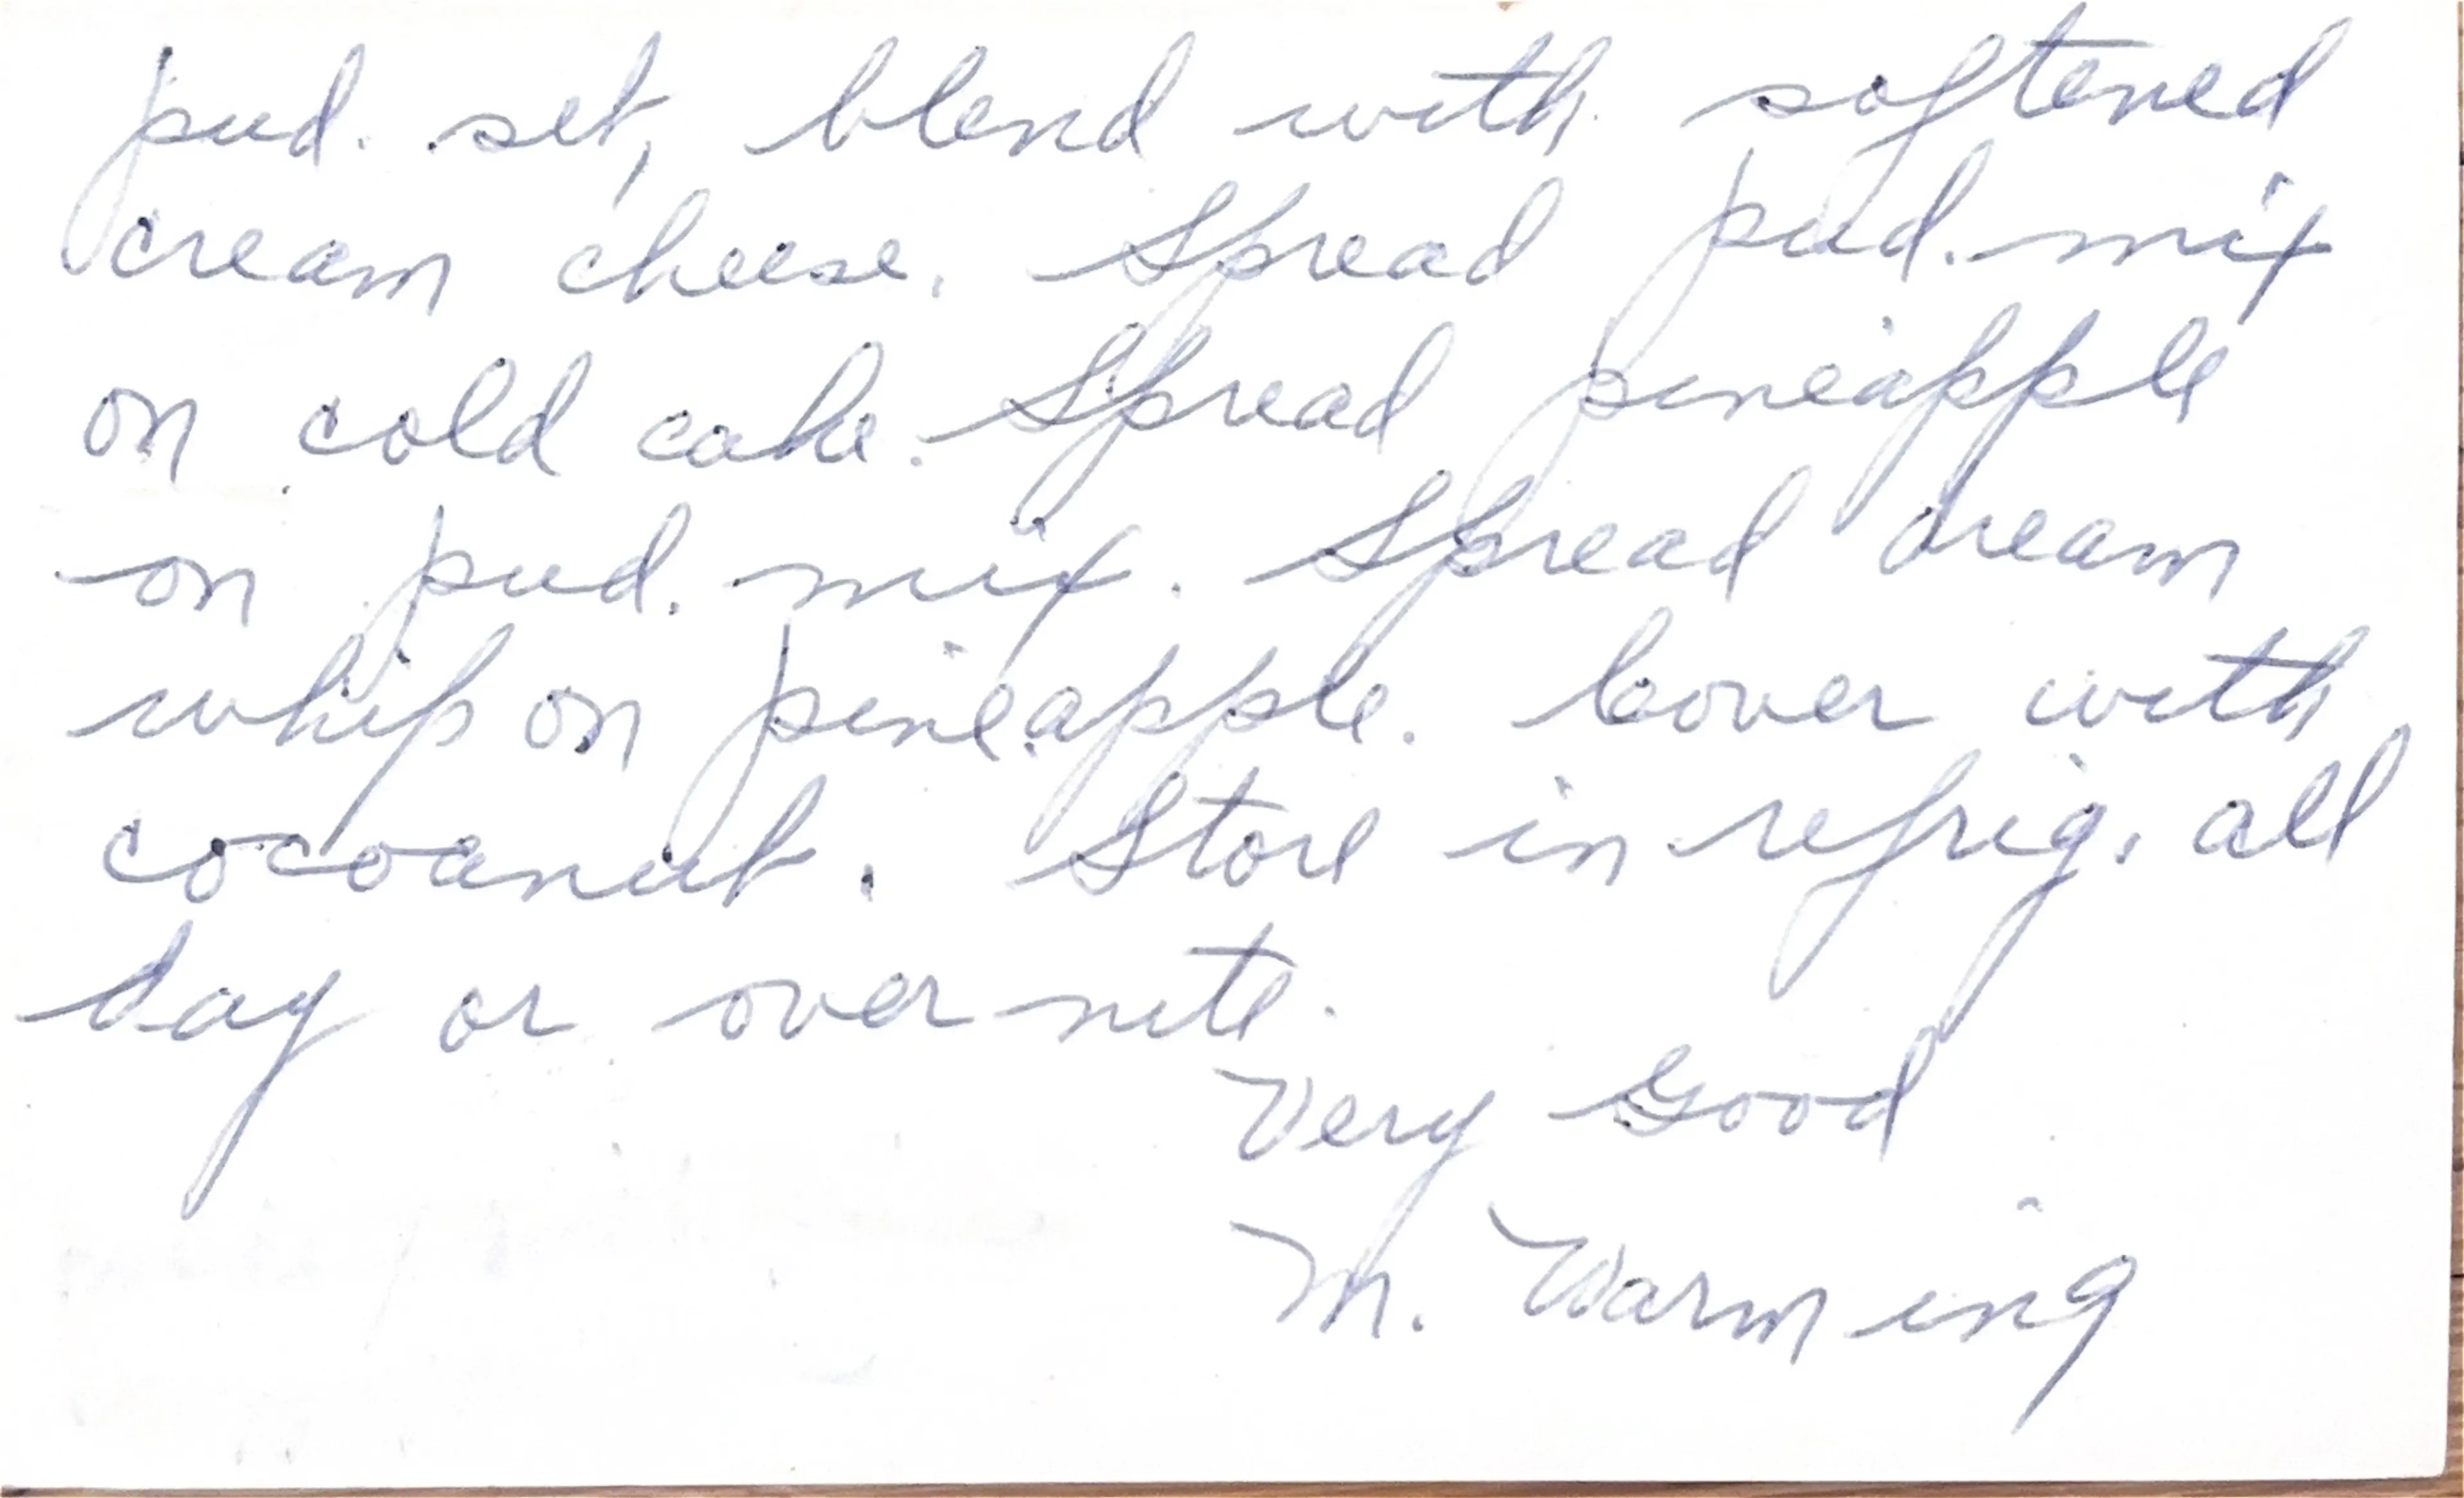 pud. set, blend with softened
cream cheese. Spread pud. mix
on cold cake. Spread pineapple
on pud. mix. Spread dream
whip on pineapple. Cover with
cocoanut. Store in refrig. all
day or over nite.
Very Good
M. Warming